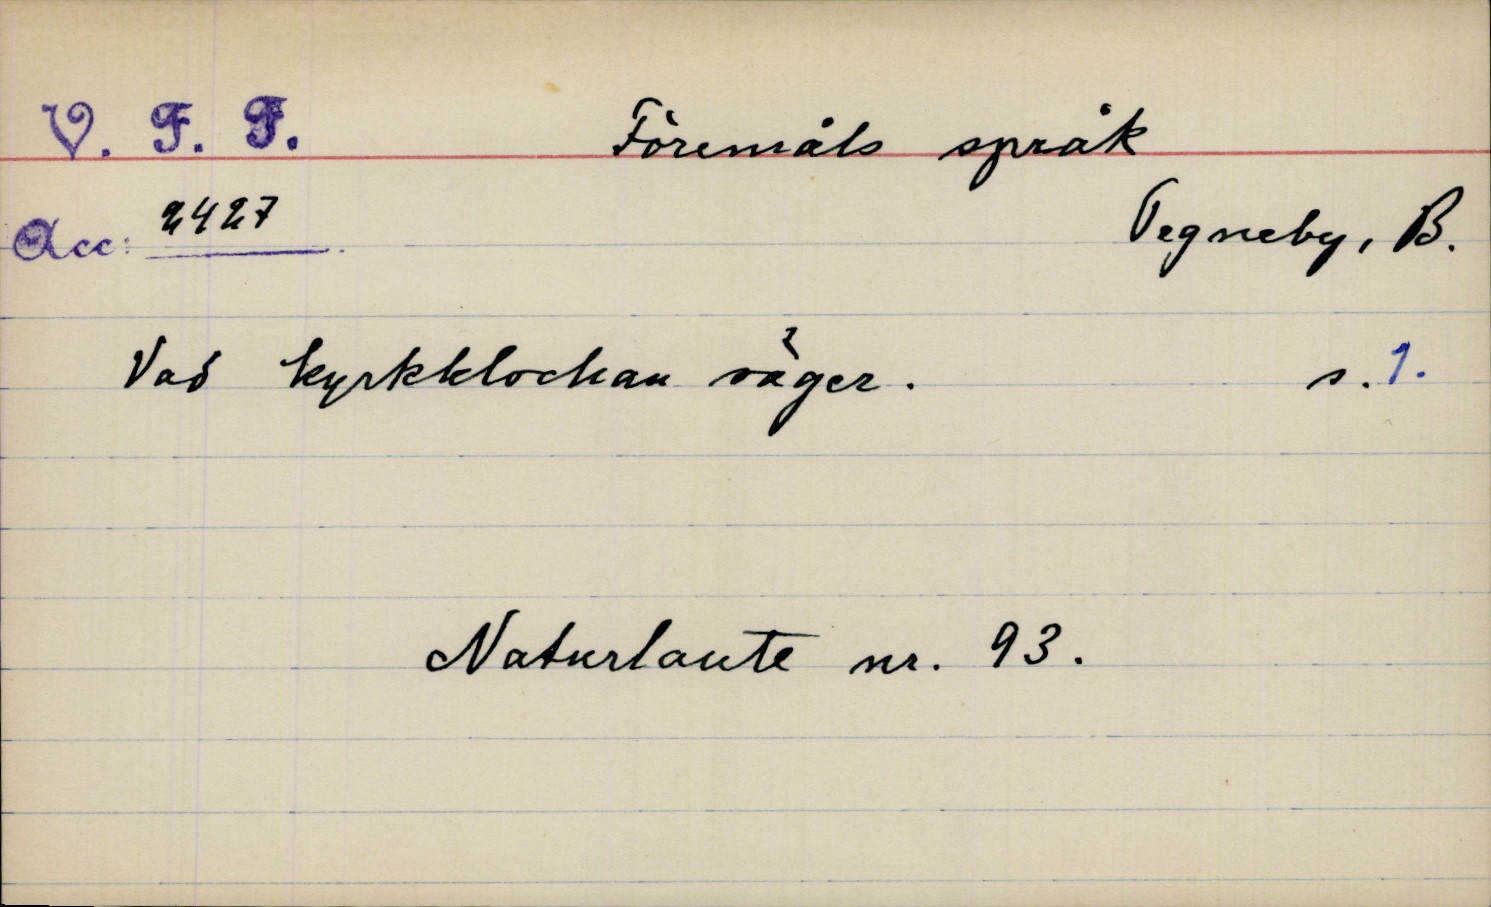 V. F. F. Föremåls språk
Acc: 2427 Tegneby, B.
Vad kyrkklockan säger. s. 1.
Naturlaute nr. 93.